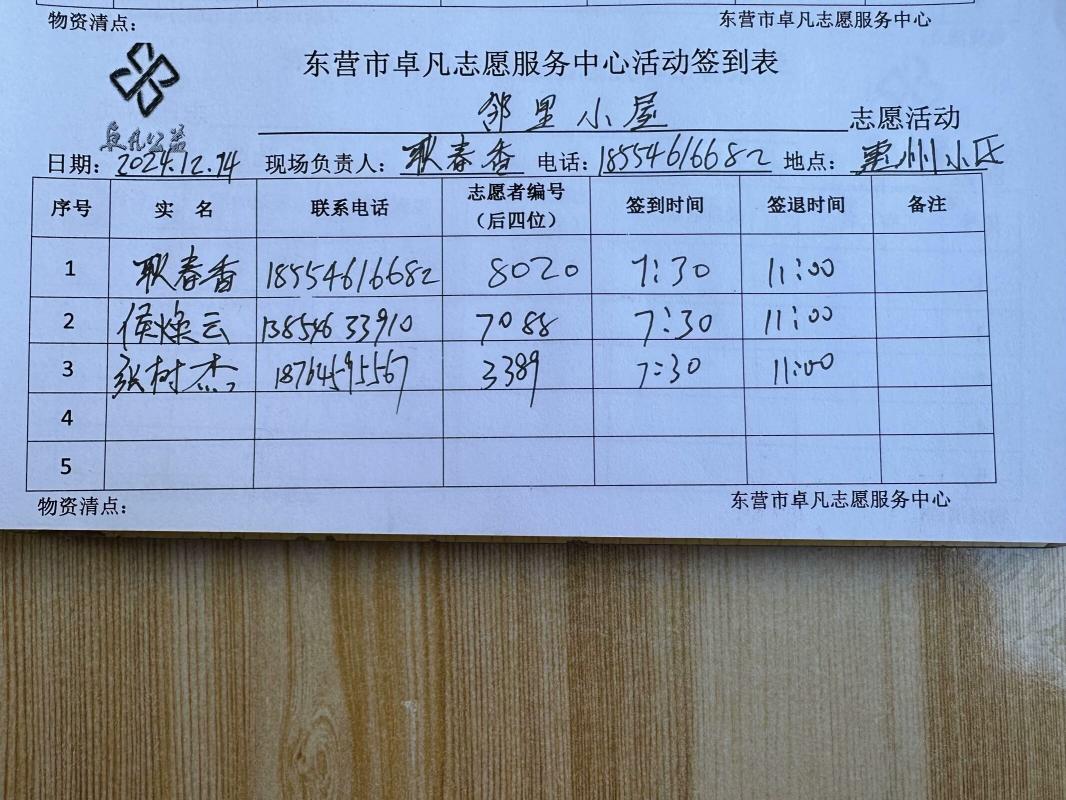 物资清点： 东营市卓凡志愿服务中心
东营市卓凡志愿服务中心活动签到表
卓凡公益
邻里小屋 志愿活动
日期：2024.12.14 现场负责人：耿春香 电话：18554616682 地点：惠州小区
序号 实 名 联系电话 志愿者编号（后四位） 签到时间 签退时间 备注
1 耿春香 18554616682 8020 7:30 11:00
2 侯燦云 13854633910 7088 7:30 11:00
3 张树杰 18764595567 3389 7:30 11:00
4
5
物资清点： 东营市卓凡志愿服务中心